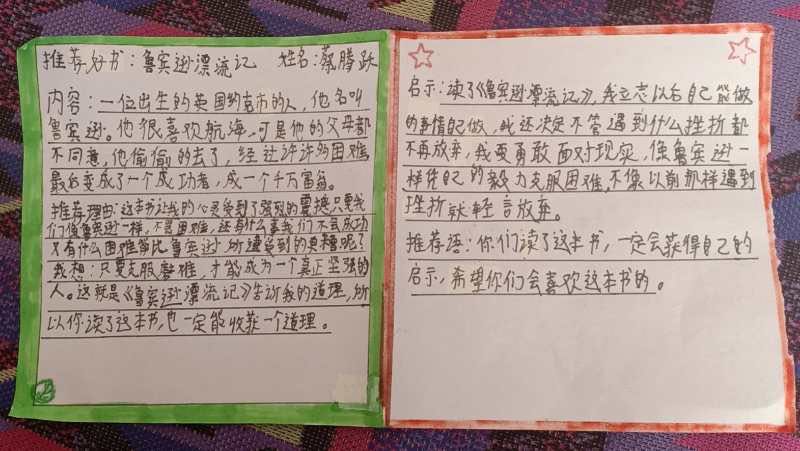 推荐好书：鲁宾逊漂流记 姓名：蔡腾跃
内容：一位出生的英国约克市的人，他名叫
鲁宾逊。他很喜欢航海，可是他的父母都
不同意，他偷偷的去了，经过许许多困难，
最后变成了一个成功者，成一个千万富翁。
推荐理由：这本书让我的心灵受到了强烈的震撼，只要我
们像鲁宾逊一样，不畏困难，还有什么事我们不会成功
又有什么困难能比鲁宾逊所遭受到的更糟呢？
我想：只要克服磨难，才能成为一个真正坚强的
人。这就是《鲁宾逊漂流记》告诉我的道理，所
以你读了这本书，也一定能收获一个道理。
启示：读了《鲁宾逊漂流记》，我立志以后自己能做
的事情自己做，我还决定不管遇到什么挫折都
不再放弃，我要勇敢面对现实，像鲁宾逊一
样凭自己的毅力克服困难，不像以前那样遇到
挫折就轻言放弃。
推荐语：你们读了这本书，一定会获得自己的
启示，希望你们会喜欢这本书的。